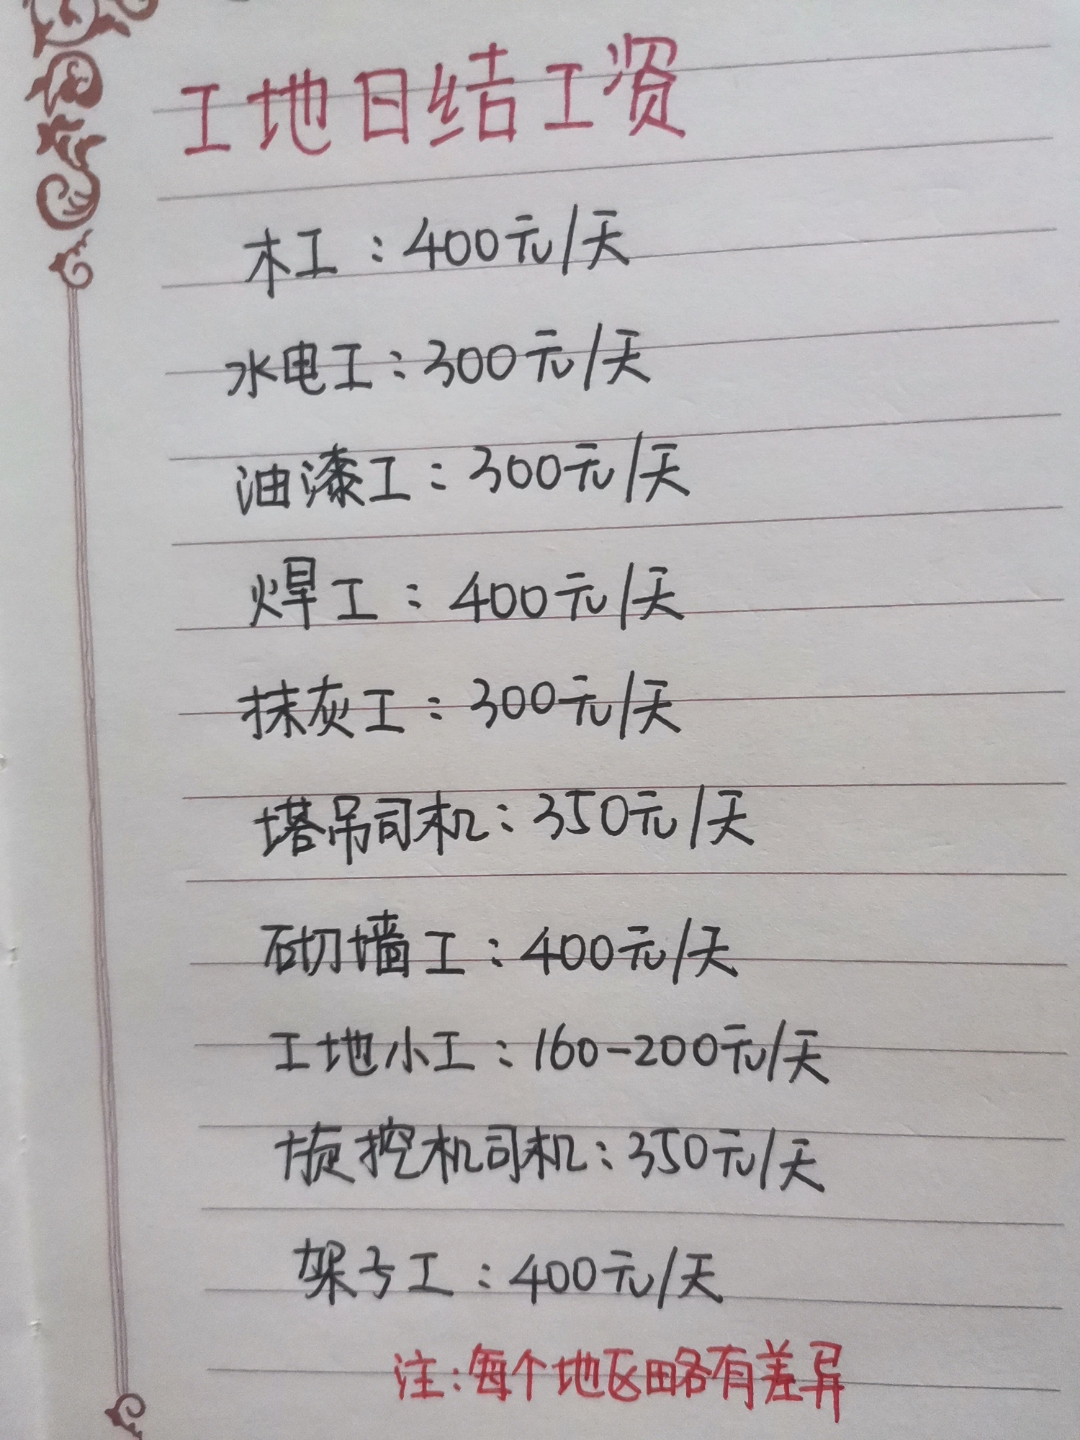 工地日结工资
木工：400元/天
水电工：300元/天
油漆工：300元/天
焊工：400元/天
抹灰工：300元/天
塔吊司机：350元/天
砌墙工：400元/天
工地小工：160-200元/天
旋挖机司机：350元/天
架子工：400元/天
注：每个地区略有差异